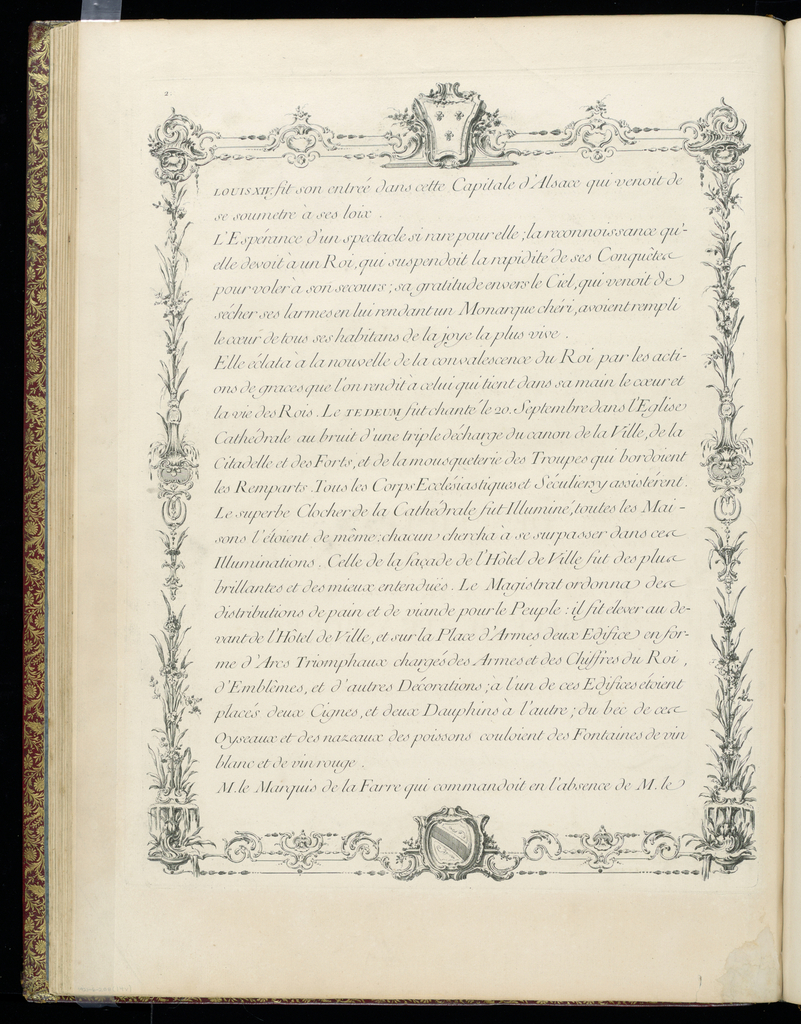 2.
LOUIS XIV. fit son entrée dans cette Capitale d'Alsace qui venoit de
se soumetre à ses loix .
L'Espérance d'un spectacle si rare pour elle ; la reconnoissance qu'-
elle devoit à un Roi, qui suspendoit la rapidité de ses Conquêtes
pour voler à son secours ; sa gratitude envers le Ciel, qui venoit de
sécher ses larmes en lui rendant un Monarque chéri, avoient rempli
le cœur de tous ses habitans de la joye la plus vive .
Elle éclata à la nouvelle de la convalescence du Roi par les acti-
ons de graces que l'on rendit à celui qui tient dans sa main le cœur et
la vie des Rois . Le TE DEUM fut chanté le 20. Septembre dans l'Eglise
Cathédrale au bruit d'une triple décharge du canon de la Ville, de la
Citadelle et des Forts, et de la mousqueterie des Troupes qui bordoient
les Remparts . Tous les Corps Ecclésiastiques et Séculiers y assistérent .
Le superbe Clocher de la Cathédrale fut Illuminé, toutes les Mai-
sons l'étoient de même ; chacun chercha à se surpasser dans ces
Illuminations . Celle de la façade de l'Hôtel de Ville fut des plus
brillantes et des mieux entendües . Le Magistrat ordonna des
distributions de pain et de viande pour le Peuple : il fit elever au de-
vant de l'Hôtel de Ville, et sur la Place d'Armes deux Edifices en for-
me d'Arcs Triomphaux chargés des Armes et des Chiffres du Roi ,
d'Emblêmes, et d'autres Décorations ; à l'un de ces Edifices étoient
placés deux Cignes, et deux Dauphins à l'autre ; du bec de ces
Oyseaux et des nazeaux des poissons couloient des Fontaines de vin
blanc et de vin rouge .
M. le Marquis de la Farre qui commandoit en l'absence de M. le